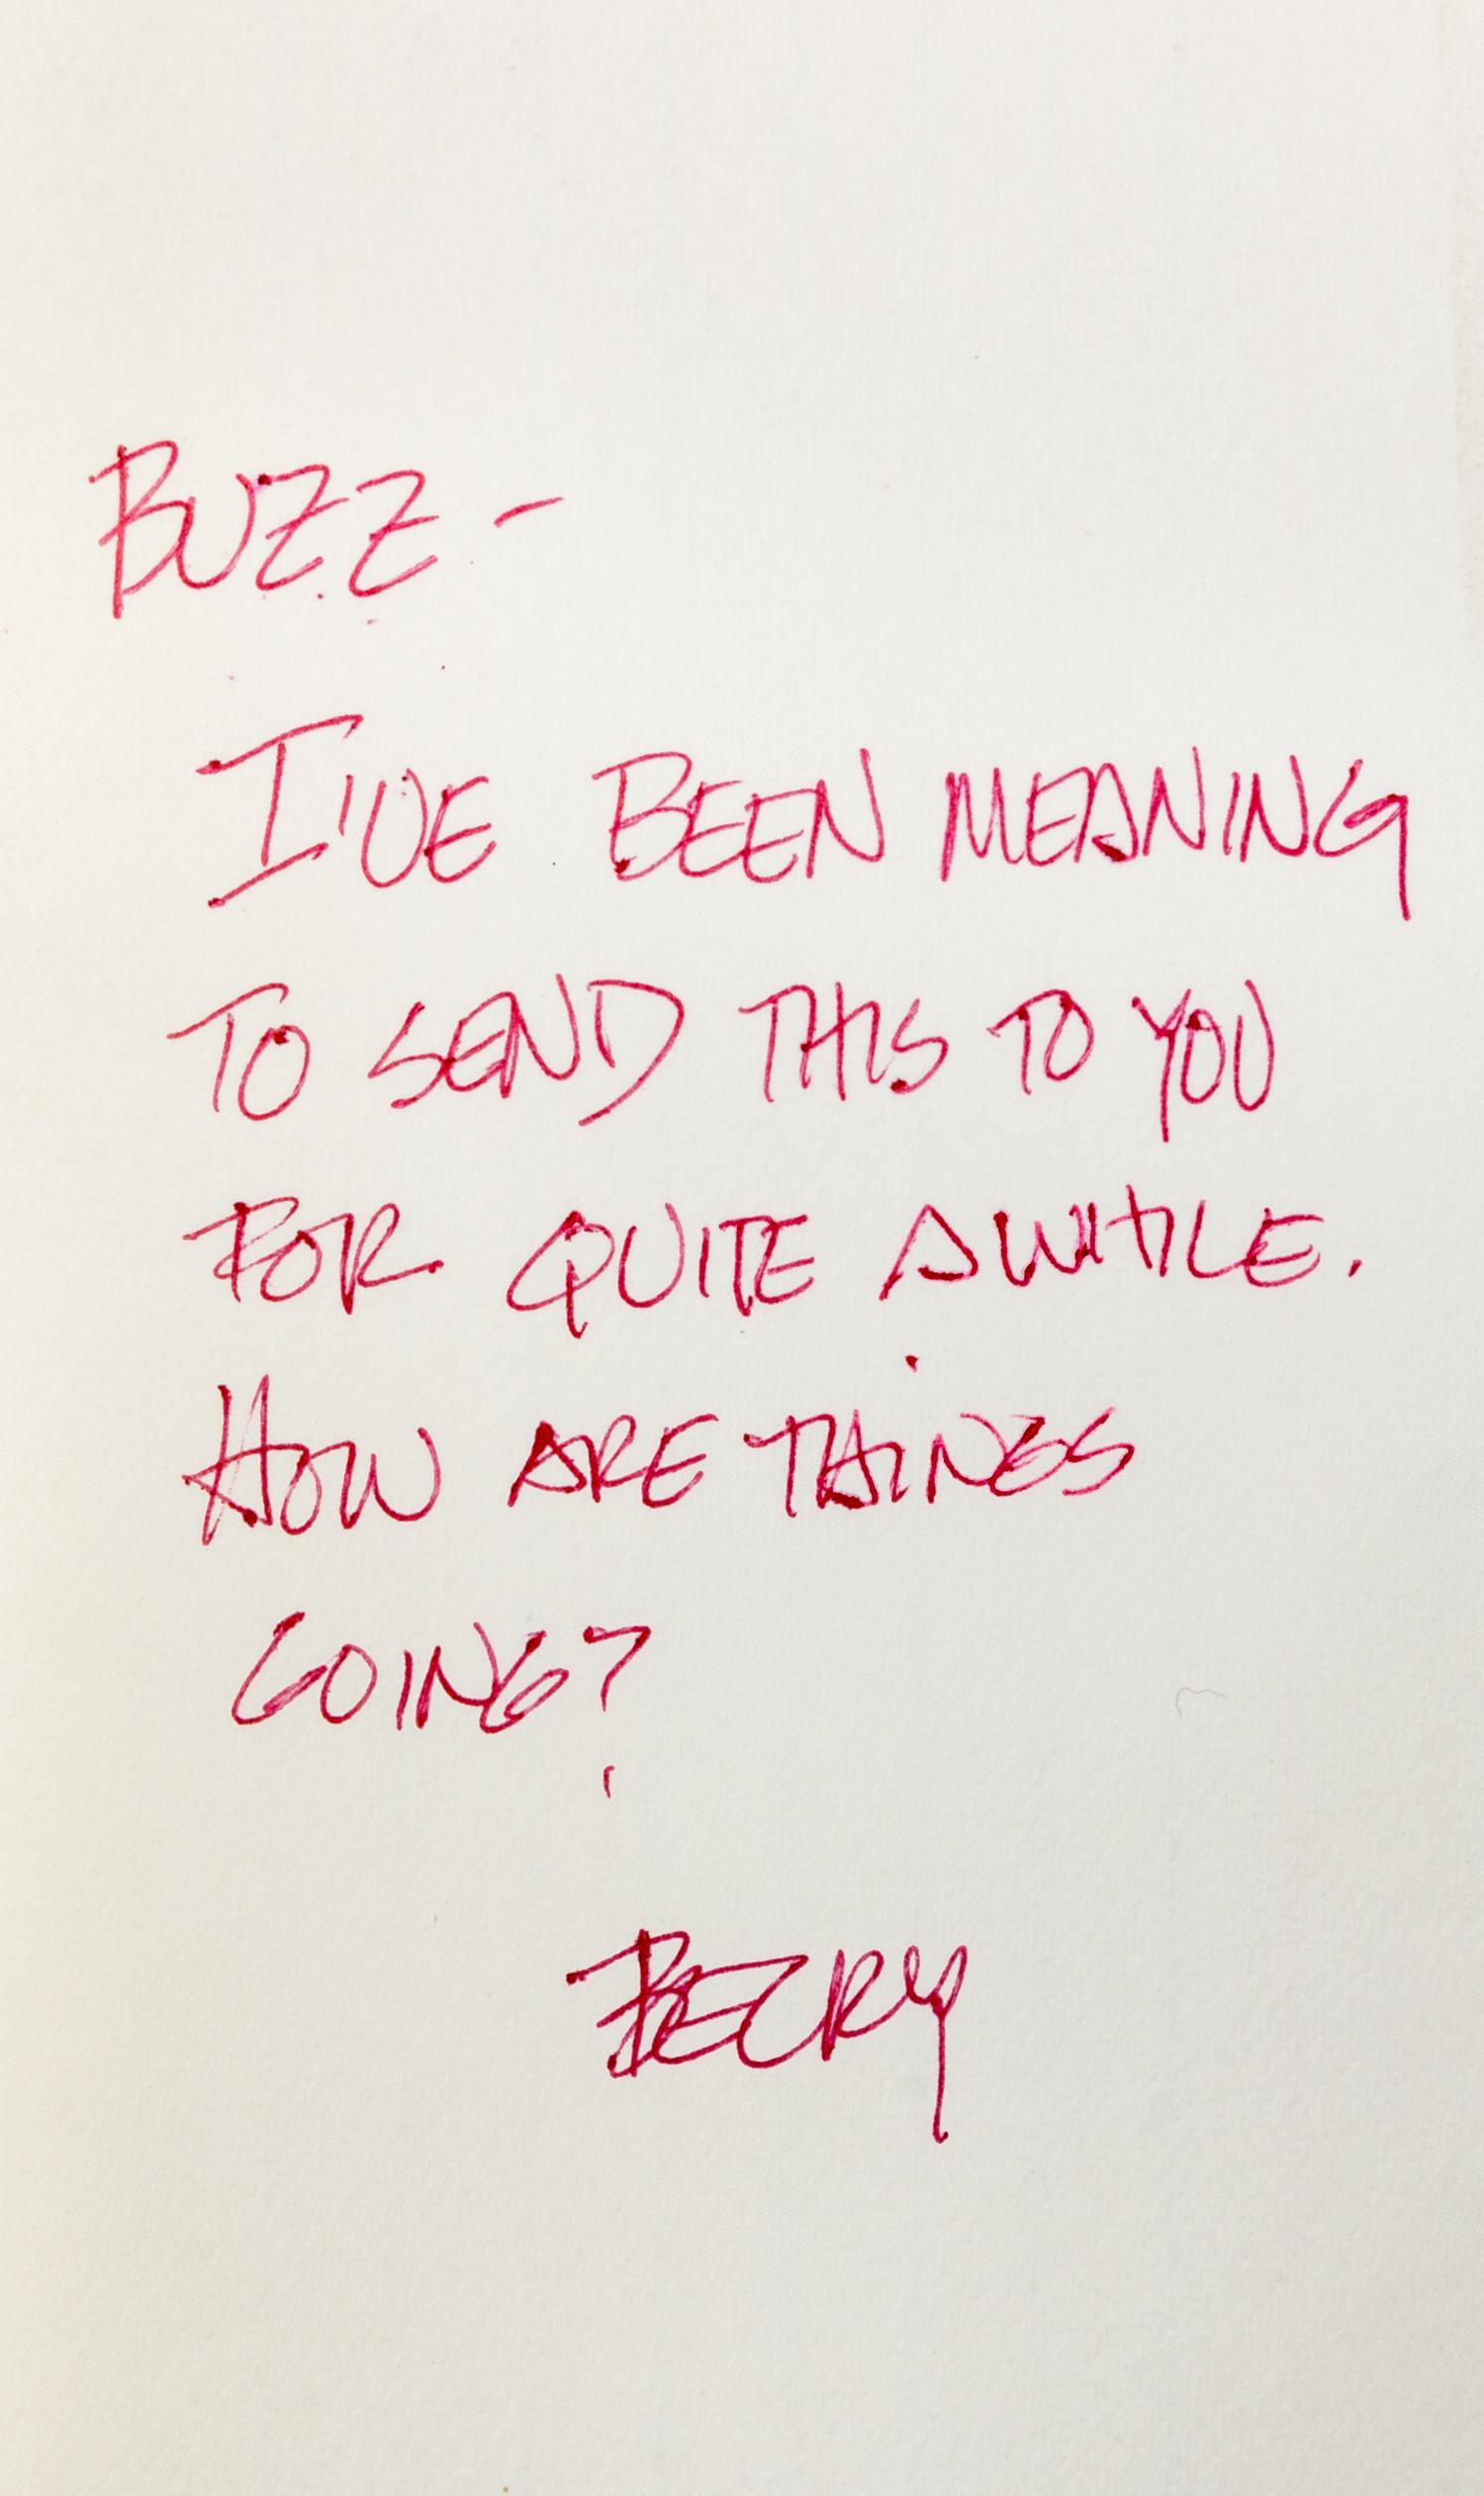 BUZZ -
I'VE BEEN MEANING
TO SEND THIS TO YOU
FOR QUITE AWHILE.
HOW ARE THINGS
GOING?
BECKY